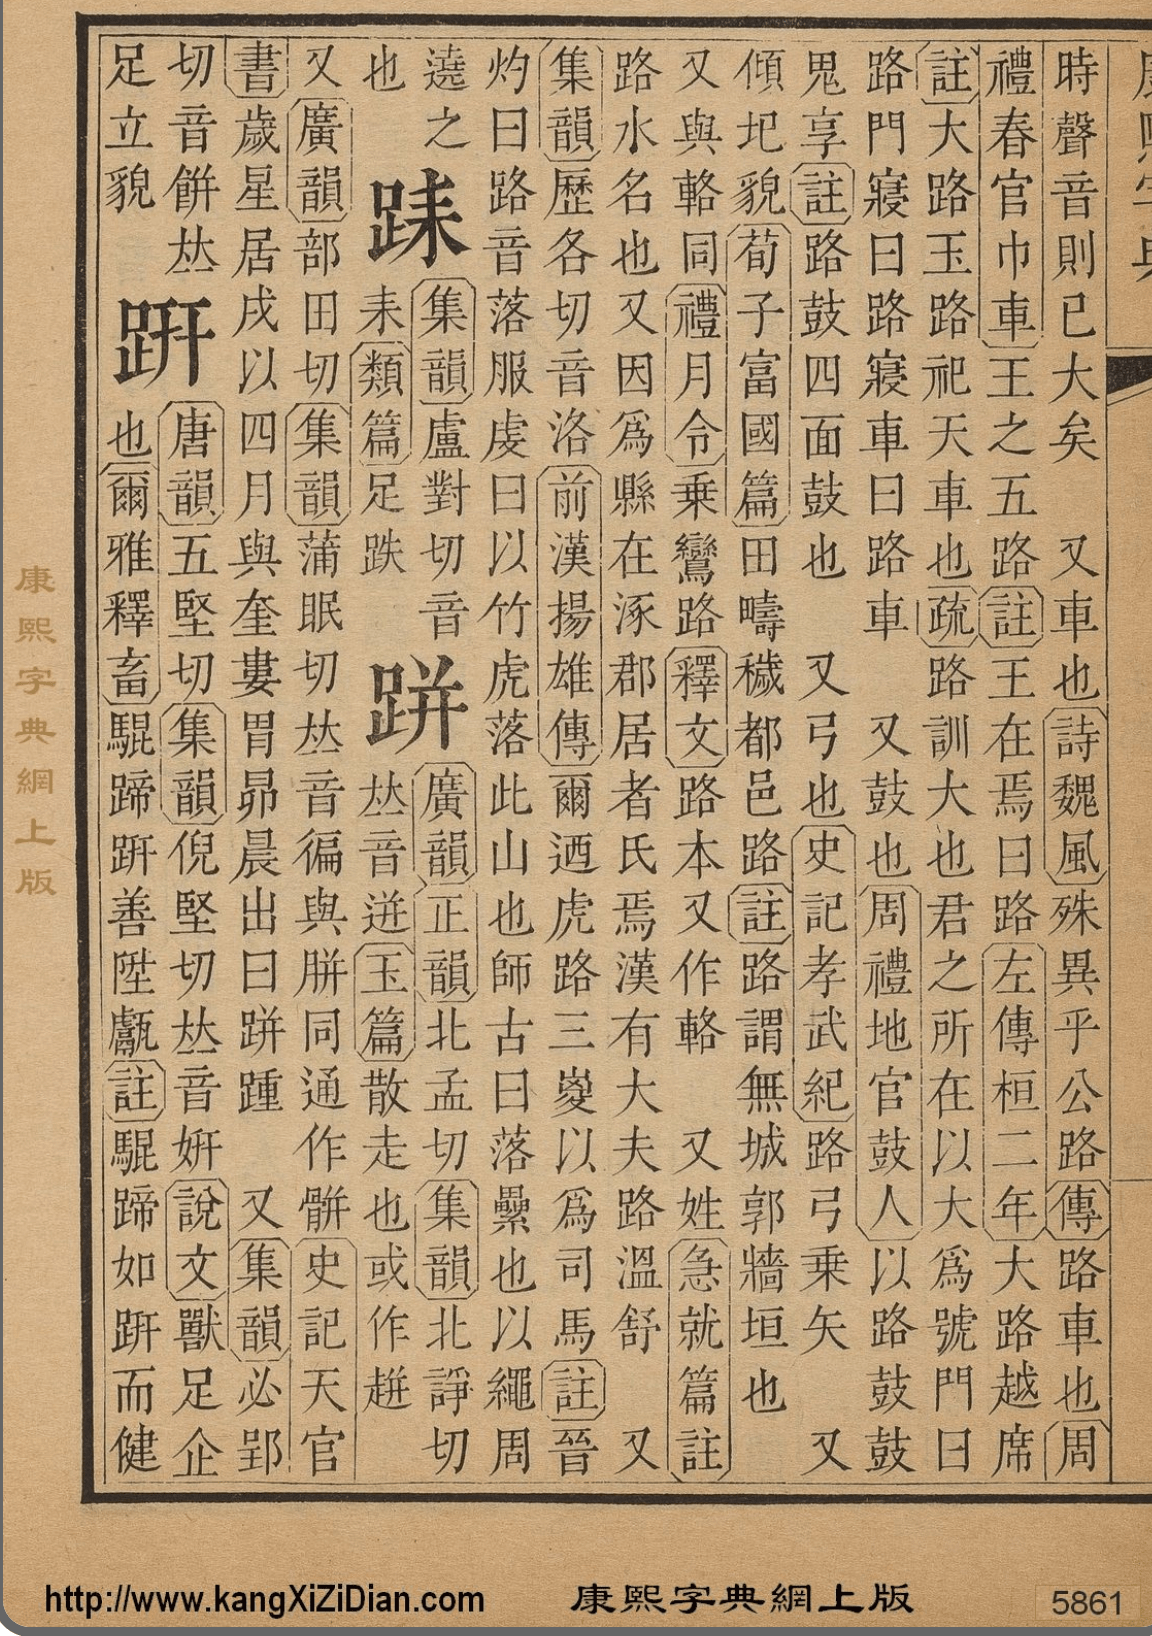 時聲音則已大矣 又車也詩魏風殊異乎公路傳路車也周
禮春官巾車王之五路註王在焉曰路左傳桓二年大路越席
註大路玉路祀天車也疏路訓大也君之所在以大爲號門曰
路門寢曰路寢車曰路車 又鼓也周禮地官鼓人以路鼓鼓
鬼享註路鼓四面鼓也 又弓也史記孝武紀路弓乗矢 又
傾圮貌荀子富國篇田疇穢都邑路註路謂無城郭牆垣也
又與輅同禮月令乗鸞路釋文路本又作輅 又姓急就篇註
路水名也又因爲縣在涿郡居者氏焉漢有大夫路溫舒 又
集韻歷各切音洛前漢揚雄傳爾迺虎路三嵏以爲司馬註晉
灼曰路音落服虔曰以竹虎落此山也師古曰落纍也以繩周
遶之
也
集韻盧對切音
耒類篇足跌
跰
廣韻正韻北孟切集韻北諍切
𠀤音迸玉篇散走也或作趰
又廣韻部田切集韻蒲眠切𠀤音徧與胼同通作骿史記天官
書歲星居戌以四月與奎婁胃昴晨出曰跰踵 又集韻必郢
切音餠𠀤
足立貌
趼
唐韻五堅切集韻倪堅切𠀤音姸說文獸足企
也爾雅釋畜騉蹄趼善陞甗註騉蹄如趼而健
康熙字典網上版
http://www.kangXiZiDian.com 康熙字典網上版 5861